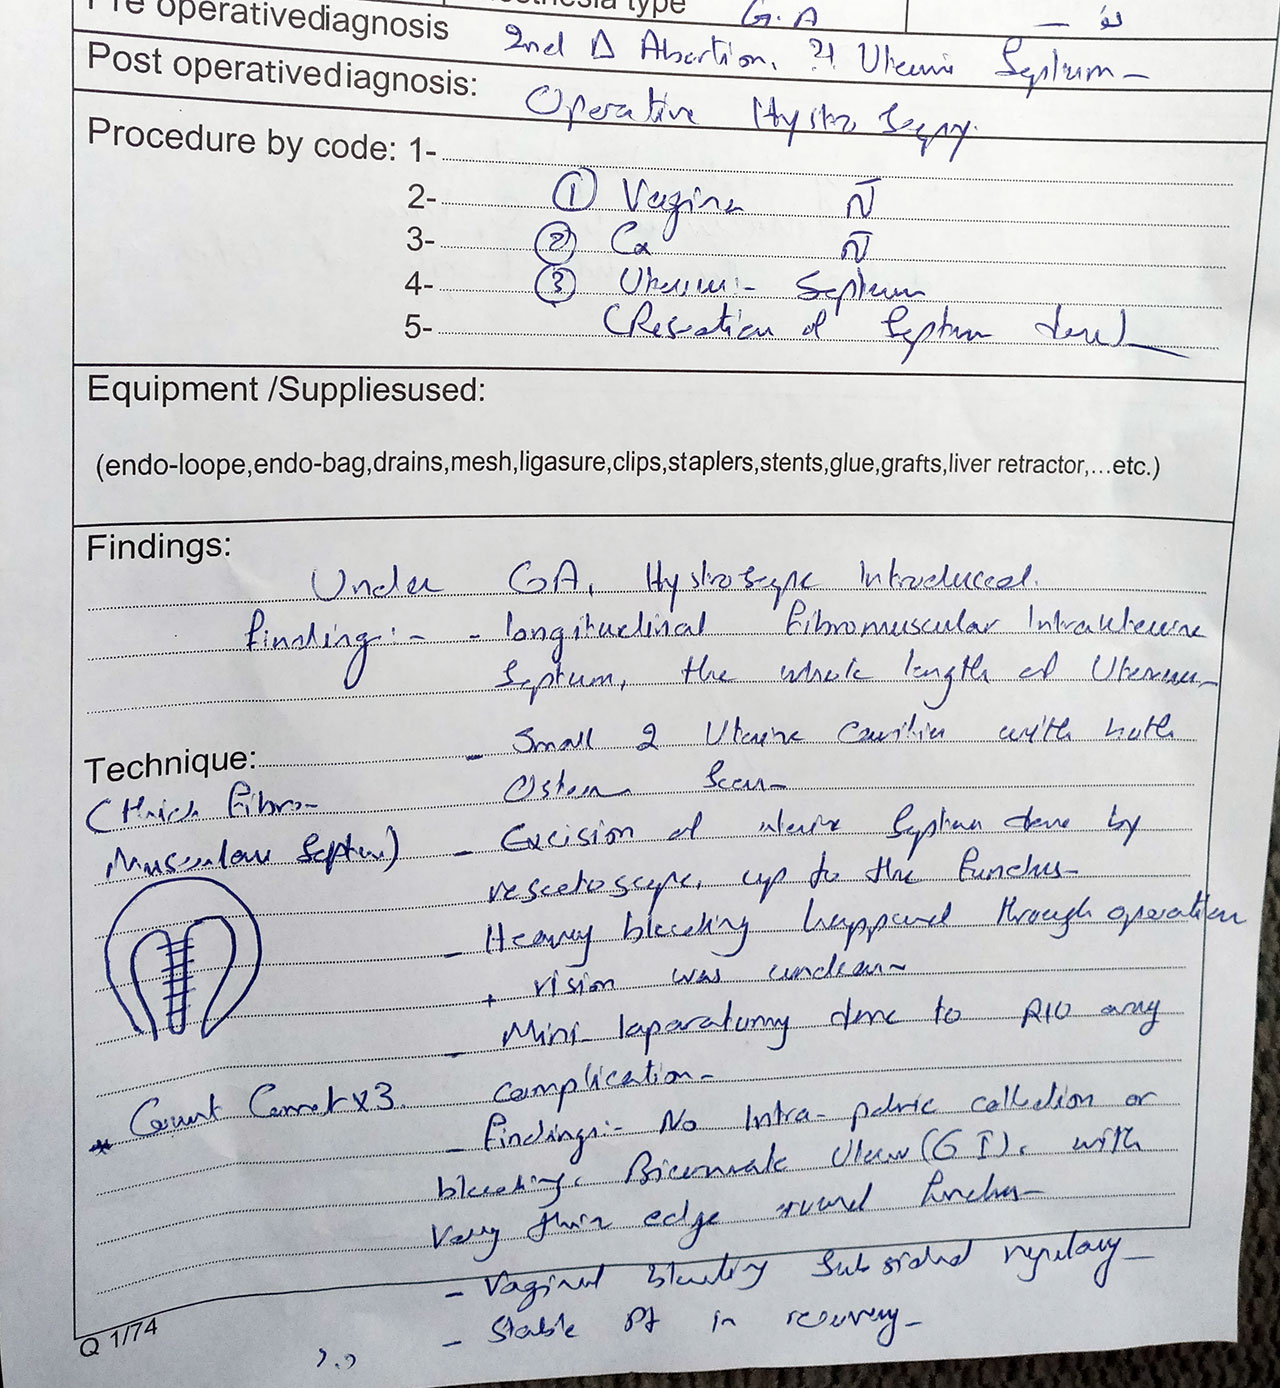 Pre operativediagnosis
type G.A
2nd Δ Abortion, Uterine Septum
Post operativediagnosis:
Operative Hystroscopy.
Procedure by code: 1-
2- ① Vagina
3- ② Cx
4- ③ Uterus:- Septum
5- (Resection of Septum done)
Equipment /Suppliesused:
(endo-loope,endo-bag,drains,mesh,ligasure,clips,staplers,stents,glue,grafts,liver retractor,...etc.)
Findings:
Under GA, Hystroscope Introduced.
finding:- - longitudinal fibromuscular Intrauterine
Septum, the whole length of Uterus
- Small 2 Uterine Cavities with both
Technique:
Osteum Seen
(thick fibro-
Muscular Septum)
- Excision of uterine Septum done by
resectoscope, up to the fundus
- Heavy bleeding happened through operation
+ vision was unclear
- Mini laparatomy done to R/O any
complication-
* Count Correct x3.
- findings:- No Intra-pelvic collection or
bleeding. Bicornuate Uterus (G I), with
Very thin edge around fundus
- Vaginal bleeding Subsided
- Stable Pt in recovery
Q 1/74